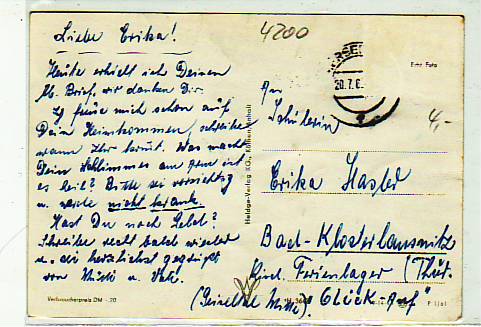 Liebe Erika!
Heute erhielt ich Deinen
lb. Brief, wir danken Dir.
Ich freue mich schon auf
Dein Heimkommen, schreibe
wann Ihr kommt. Was macht
Dein Schlimmes am Arm ist
es heil? Bitte sei vorsichtig
u. werde nicht krank.
Hast Du noch Geld?
Schreibe recht bald wieder
u. sei herzlichst gegrüßt
von Mutti u. Vati.
Verbraucherpreis DM -.20
4200
Echt Foto
20.7.6
4,-
An
Schülerin
Erika Hasler
Bad-Klosterlausnitz
Kind. Ferienlager (Thür.
"Glück-Auf"
Heldge-Verlag KG., Köthen/Anhalt